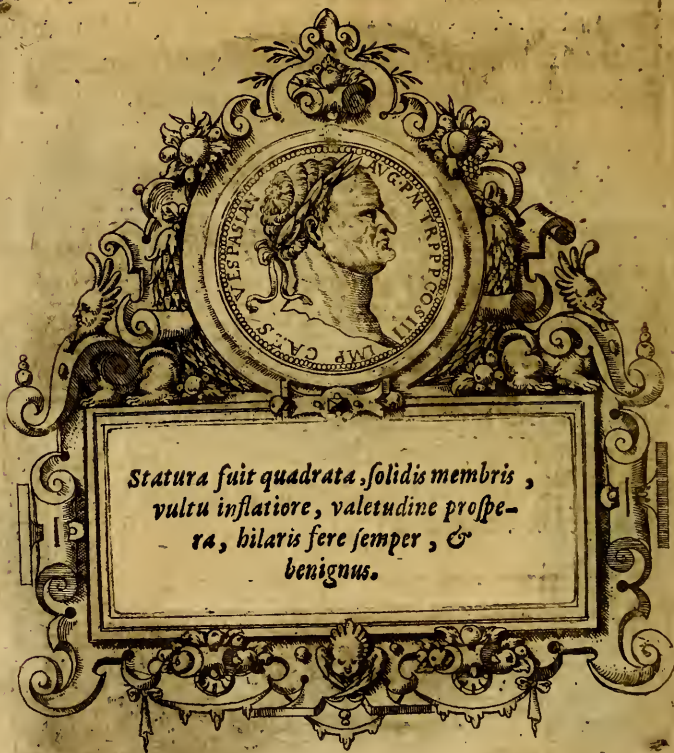 IMP CAES VESPASIAN AVG·PM TRPPPCOSIIII
Statura fuit quadrata, ſolidis membris,
vultu inflatiore, valetudine proſpe-
ra, hilaris fere ſemper, &
benignus.